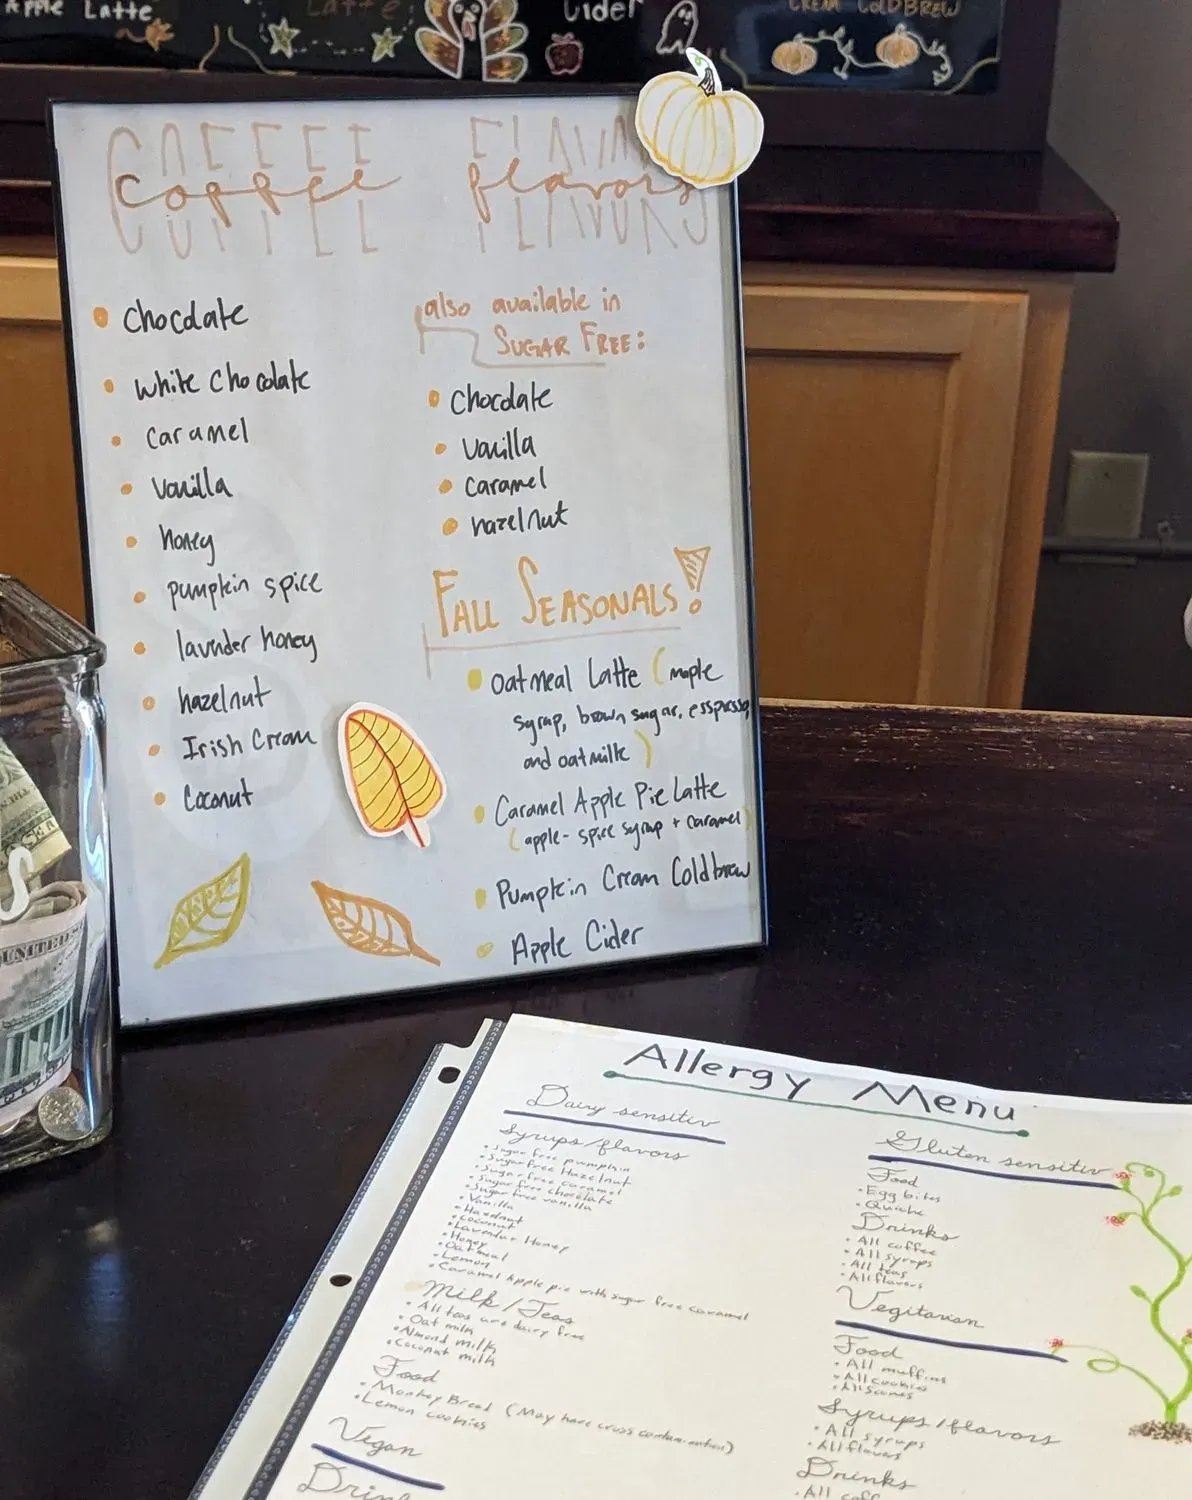 Apple Latte
Latte
Cider
CREAM COLDBREW
COFFEE
coffee
FLAVORS
flavors
chocolate
white chocolate
caramel
vanilla
honey
pumpkin spice
lavender honey
hazelnut
Irish Cream
Coconut
also available in
SUGAR FREE:
chocolate
vanilla
caramel
hazelnut
FALL SEASONALS!
oatmeal Latte (maple
syrup, brown sugar, esspresso,
and oatmilk)
Caramel Apple Pie Latte
(apple-spice syrup + caramel)
Pumpkin Cream Coldbrew
Apple Cider
UNITED
Allergy Menu
Dairy sensitiv
Syrups/flavors
• Sugar free pumpkin
• Sugar free Hazelnut
• Sugar free caramel
• Sugar free chocolate
• Sugar free vanilla
• Vanilla
• Hazelnut
• Coconut
• Lavender Honey
• Honey
• Oatmeal
• Lemon
• Caramel Apple pie with sugar free caramel
Milk/Teas
• All teas are dairy free
• Oat milk
• Almond milk
• Coconut milk
Food
• Monkey Bread (May have cross contamination)
• Lemon cookies
Vegan
Gluten sensitiv
Food
• Egg bites
• Quiche
Drinks
• All coffee
• All syrups
• All teas
• All flavors
Vegitarian
Food
• All muffins
• All cookies
• All Scones
Syrups/flavors
• All syrups
• All flavors
Drinks